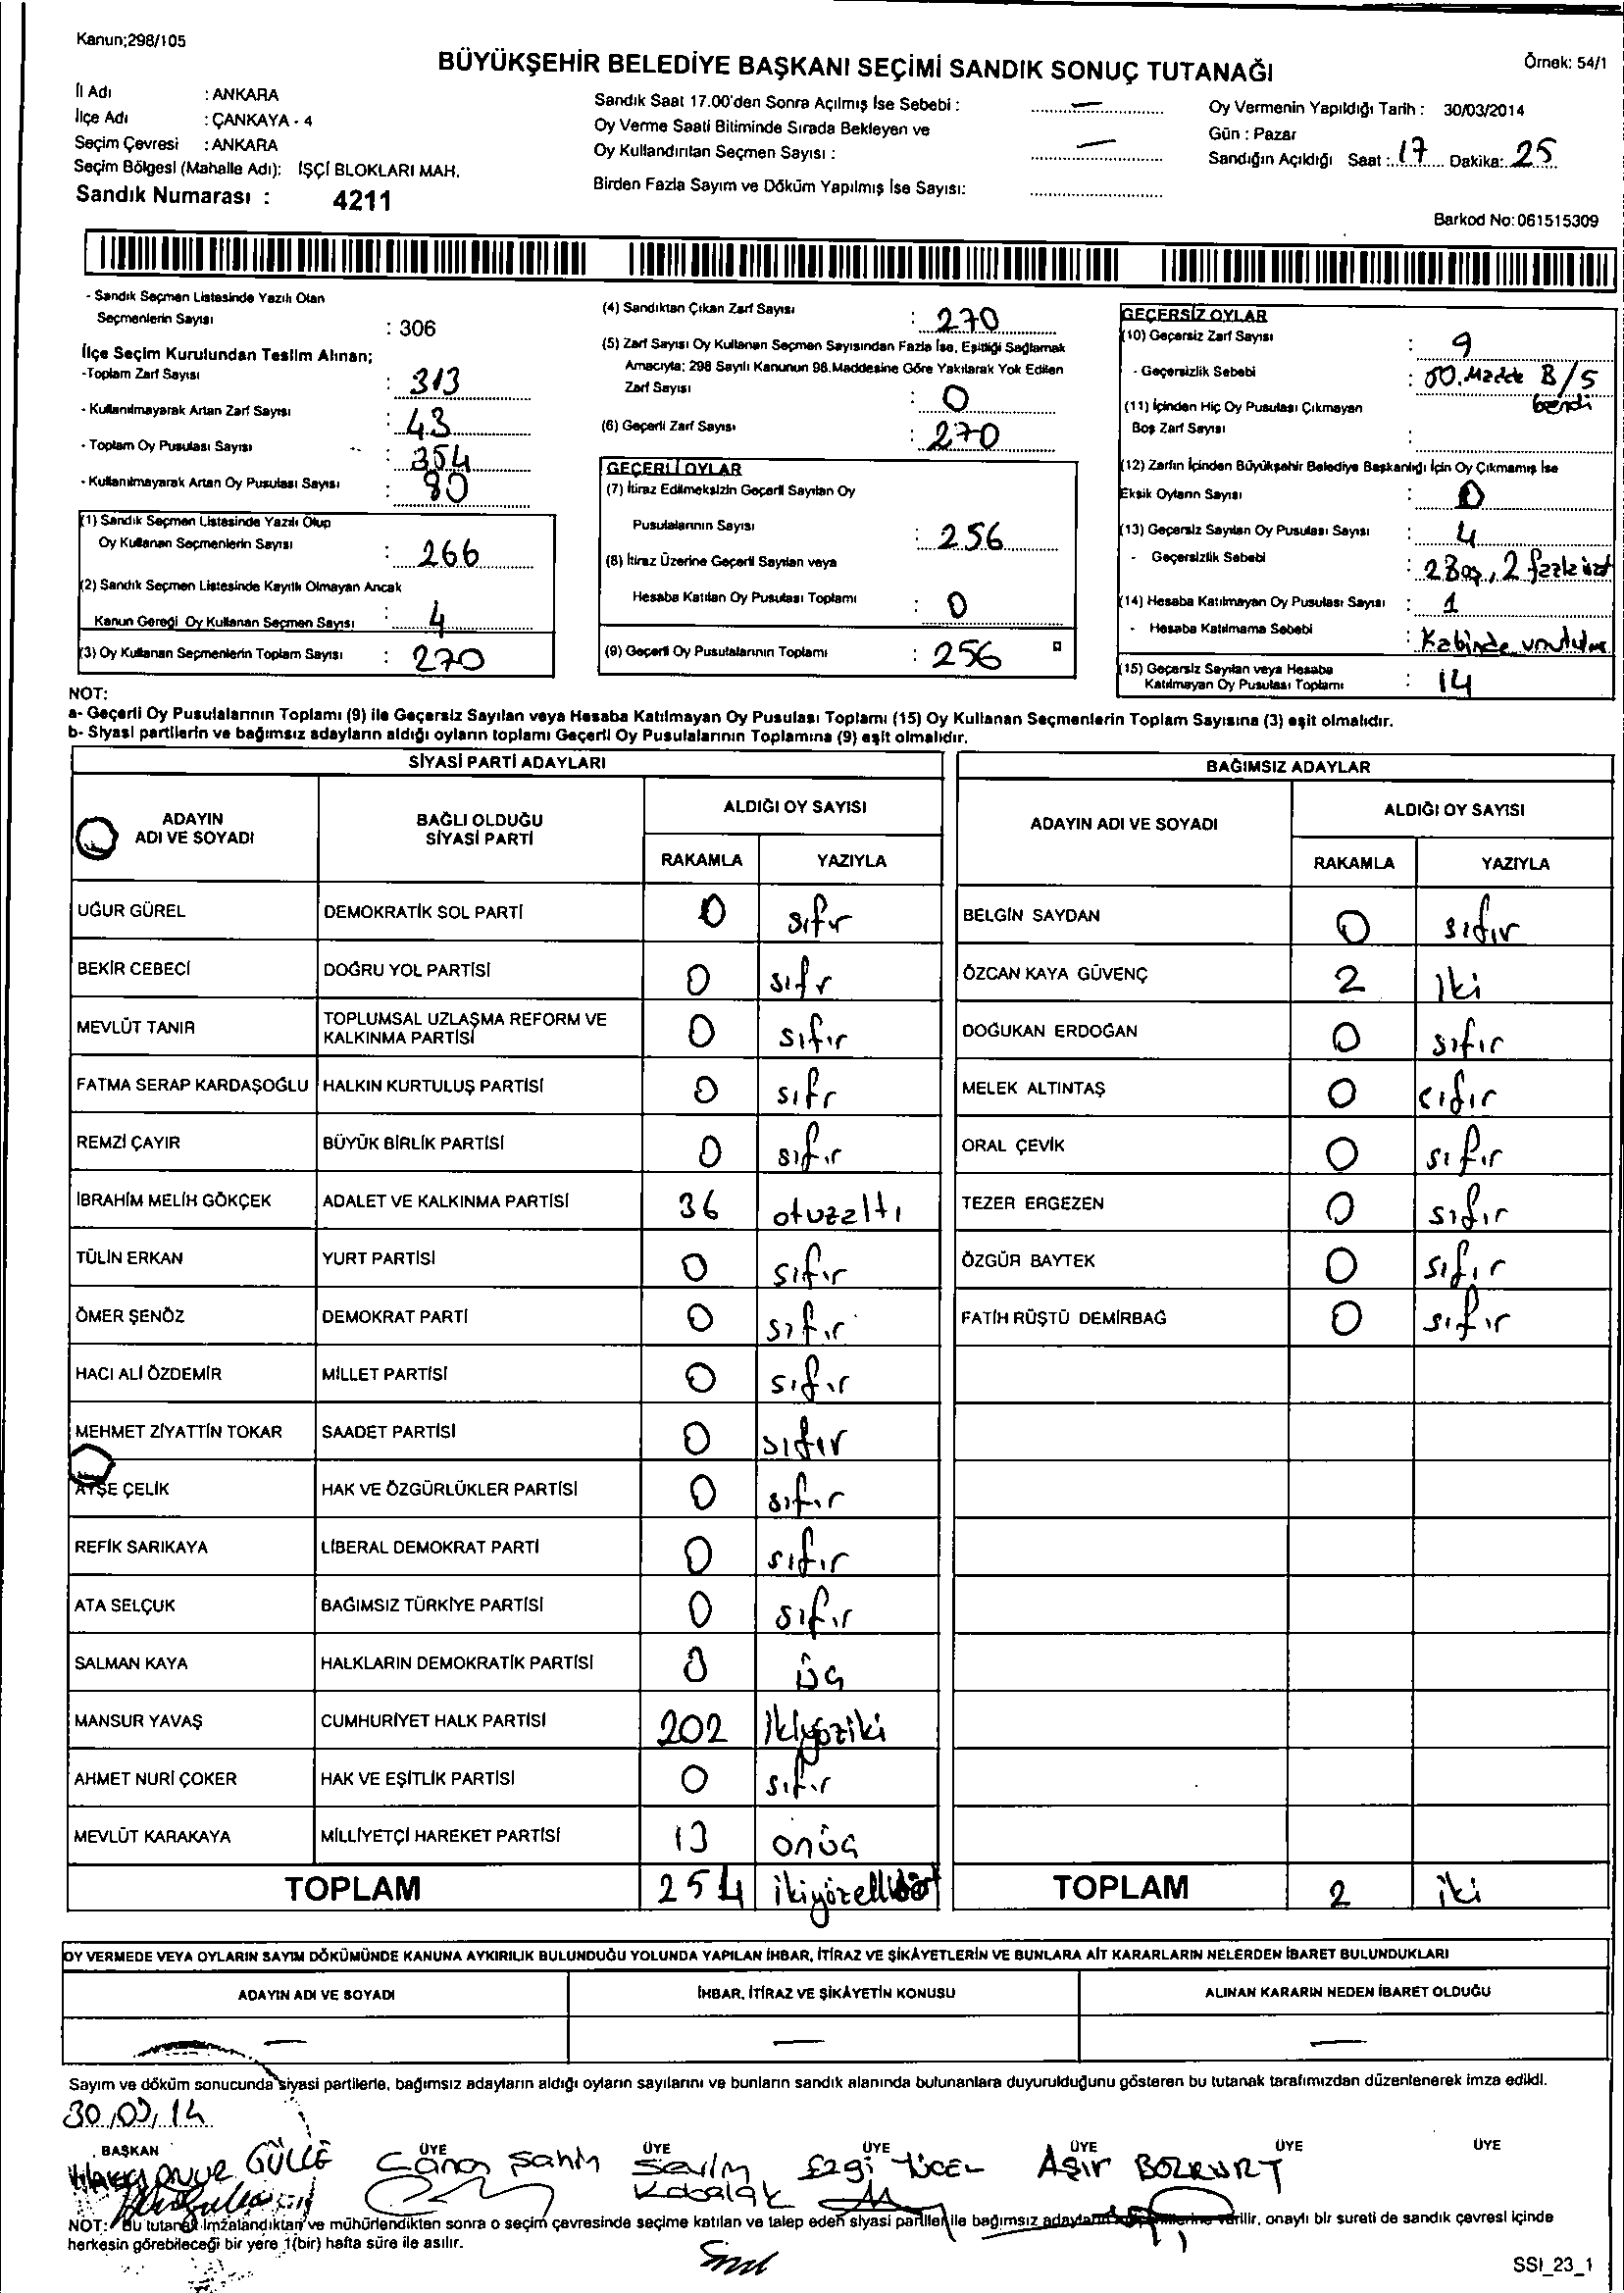 Kanun;298/105
BÜYÜKŞEHİR BELEDİYE BAŞKANI SEÇİMİ SANDIK SONUÇ TUTANAĞI
Örnek: 54/1
İl Adı : ANKARA
İlçe Adı : ÇANKAYA - 4
Seçim Çevresi : ANKARA
Seçim Bölgesi (Mahalle Adı): İŞÇİ BLOKLARI MAH.
Sandık Numarası : 4211
Sandık Saat 17.00'den Sonra Açılmış İse Sebebi : —
Oy Verme Saati Bitiminde Sırada Bekleyen ve
Oy Kullandırılan Seçmen Sayısı : —
Birden Fazla Sayım ve Döküm Yapılmış İse Sayısı:
Oy Vermenin Yapıldığı Tarih : 30/03/2014
Gün : Pazar
Sandığın Açıldığı Saat : 17 Dakika: 25
Barkod No: 061515309
- Sandık Seçmen Listesinde Yazılı Olan
Seçmenlerin Sayısı : 306
İlçe Seçim Kurulundan Teslim Alınan;
-Toplam Zarf Sayısı : 313
- Kullanılmayarak Artan Zarf Sayısı : 43
- Toplam Oy Pusulası Sayısı : 354
- Kullanılmayarak Artan Oy Pusulası Sayısı : 80
(1) Sandık Seçmen Listesinde Yazılı Olup
Oy Kullanan Seçmenlerin Sayısı : 266
(2) Sandık Seçmen Listesinde Kayıtlı Olmayan Ancak
Kanun Gereği Oy Kullanan Seçmen Sayısı : 4
(3) Oy Kullanan Seçmenlerin Toplam Sayısı : 270
(4) Sandıktan Çıkan Zarf Sayısı : 270
(5) Zarf Sayısı Oy Kullanan Seçmen Sayısından Fazla İse, Eşitliği Sağlamak
Amacıyla; 298 Sayılı Kanunun 98.Maddesine Göre Yakılarak Yok Edilen
Zarf Sayısı : 0
(6) Geçerli Zarf Sayısı : 270
GEÇERLİ OYLAR
(7) İtiraz Edilmeksizin Geçerli Sayılan Oy
Pusulalarının Sayısı : 256
(8) İtiraz Üzerine Geçerli Sayılan veya
Hesaba Katılan Oy Pusulası Toplamı : 0
(9) Geçerli Oy Pusulalarının Toplamı : 256
GEÇERSİZ OYLAR
(10) Geçersiz Zarf Sayısı : 9
- Geçersizlik Sebebi : 50. Madde B/5
bendi
(11) İçinden Hiç Oy Pusulası Çıkmayan
Boş Zarf Sayısı :
(12) Zarfın İçinden Büyükşehir Belediye Başkanlığı İçin Oy Çıkmamış İse
Eksik Oyların Sayısı : 0
(13) Geçersiz Sayılan Oy Pusulası Sayısı : 4
- Geçersizlik Sebebi : 2 Boş, 2 fazla
(14) Hesaba Katılmayan Oy Pusulası Sayısı : 1
- Hesaba Katılmama Sebebi : Kabinde
(15) Geçersiz Sayılan veya Hesaba
Katılmayan Oy Pusulası Toplamı : 14
NOT:
a- Geçerli Oy Pusulalarının Toplamı (9) ile Geçersiz Sayılan veya Hesaba Katılmayan Oy Pusulası Toplamı (15) Oy Kullanan Seçmenlerin Toplam Sayısına (3) eşit olmalıdır.
b- Siyasi partilerin ve bağımsız adayların aldığı oyların toplamı Geçerli Oy Pusulalarının Toplamına (9) eşit olmalıdır.
SİYASİ PARTİ ADAYLARI
ADAYIN ADI VE SOYADI BAĞLI OLDUĞU SİYASİ PARTİ ALDIĞI OY SAYISI
RAKAMLA YAZIYLA
UĞUR GÜREL DEMOKRATİK SOL PARTİ 0 sıfır
BEKİR CEBECİ DOĞRU YOL PARTİSİ 0 sıfır
MEVLÜT TANIR TOPLUMSAL UZLAŞMA REFORM VE KALKINMA PARTİSİ 0 sıfır
FATMA SERAP KARDAŞOĞLU HALKIN KURTULUŞ PARTİSİ 0 sıfr
REMZİ ÇAYIR BÜYÜK BİRLİK PARTİSİ 0 sıfır
İBRAHİM MELİH GÖKÇEK ADALET VE KALKINMA PARTİSİ 36 otuzaltı
TÜLİN ERKAN YURT PARTİSİ 0 sıfır
ÖMER ŞENÖZ DEMOKRAT PARTİ 0 sıfır
HACI ALİ ÖZDEMİR MİLLET PARTİSİ 0 sıfır
MEHMET ZİYATTİN TOKAR SAADET PARTİSİ 0 sıfır
AYŞE ÇELİK HAK VE ÖZGÜRLÜKLER PARTİSİ 0 sıfır
REFİK SARIKAYA LİBERAL DEMOKRAT PARTİ 0 sıfır
ATA SELÇUK BAĞIMSIZ TÜRKİYE PARTİSİ 0 sıfır
SALMAN KAYA HALKLARIN DEMOKRATİK PARTİSİ 3 üç
MANSUR YAVAŞ CUMHURİYET HALK PARTİSİ 202 ikiyüziki
AHMET NURİ ÇOKER HAK VE EŞİTLİK PARTİSİ 0 sıfır
MEVLÜT KARAKAYA MİLLİYETÇİ HAREKET PARTİSİ 13 onüç
TOPLAM 254 ikiyüzellidört
BAĞIMSIZ ADAYLAR
ADAYIN ADI VE SOYADI ALDIĞI OY SAYISI
RAKAMLA YAZIYLA
BELGİN SAYDAN 0 sıfır
ÖZCAN KAYA GÜVENÇ 2 iki
DOĞUKAN ERDOĞAN 0 sıfır
MELEK ALTINTAŞ 0 sıfır
ORAL ÇEVİK 0 sıfır
TEZER ERGEZEN 0 sıfır
ÖZGÜR BAYTEK 0 sıfır
FATİH RÜŞTÜ DEMİRBAĞ 0 sıfır
TOPLAM 2 iki
OY VERMEDE VEYA OYLARIN SAYIM DÖKÜMÜNDE KANUNA AYKIRILIK BULUNDUĞU YOLUNDA YAPILAN İHBAR, İTİRAZ VE ŞİKÂYETLERİN VE BUNLARA AİT KARARLARIN NELERDEN İBARET BULUNDUKLARI
ADAYIN ADI VE SOYADI İHBAR, İTİRAZ VE ŞİKÂYETİN KONUSU ALINAN KARARIN NEDEN İBARET OLDUĞU
— — —
Sayım ve döküm sonucunda siyasi partilerle, bağımsız adayların aldığı oyların sayılarını ve bunların sandık alanında bulunanlara duyurulduğunu gösteren bu tutanak tarafımızdan düzenlenerek imza edildi.
30/03/14
BAŞKAN ÜYE ÜYE ÜYE ÜYE ÜYE ÜYE
GÜLLE Şahin Sevim Kabalak Ezgi YÜCEL BOZKURT
NOT: Bu tutanak imzalandıktan ve mühürlendikten sonra o seçim çevresinde seçime katılan ve talep eden siyasi partiler ile bağımsız adayların verilir, onaylı bir sureti de sandık çevresi içinde
herkesin görebileceği bir yere 1(bir) hafta süre ile asılır.
SSI_23_1